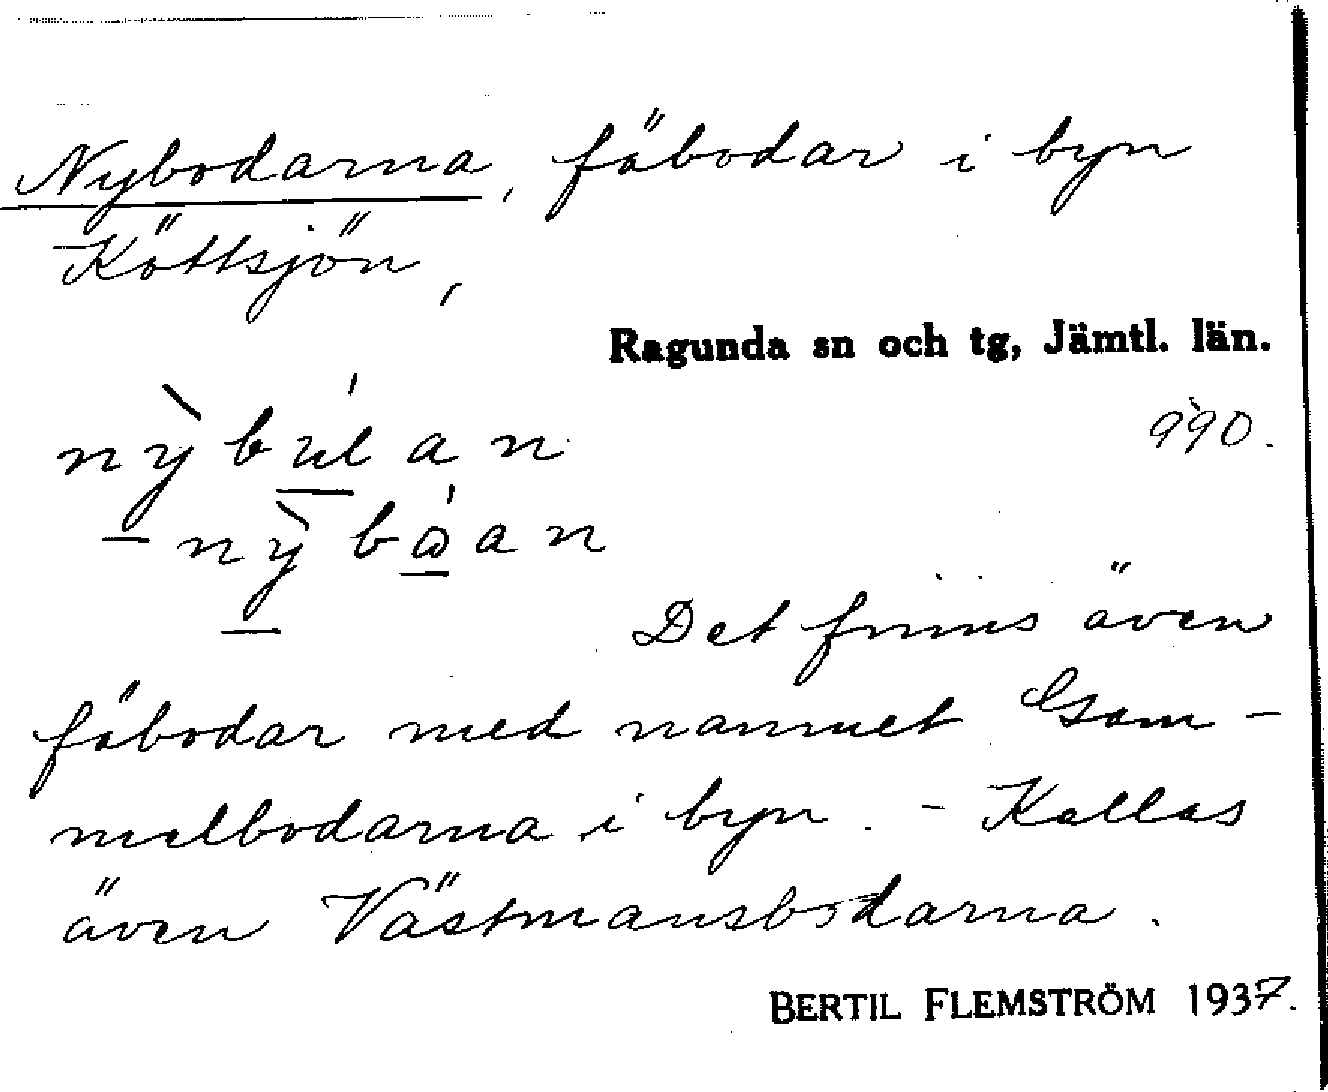 Nybodarna, föbodar i byn
Köttsjön,
Ragunda sn och tg, Jämtl. län.
990.
Det finns även
föbodar med namnet Gam-
melbodarna i byn. - Kallas
även Västmansbodarna.
BERTIL FLEMSTRÖM 1937.